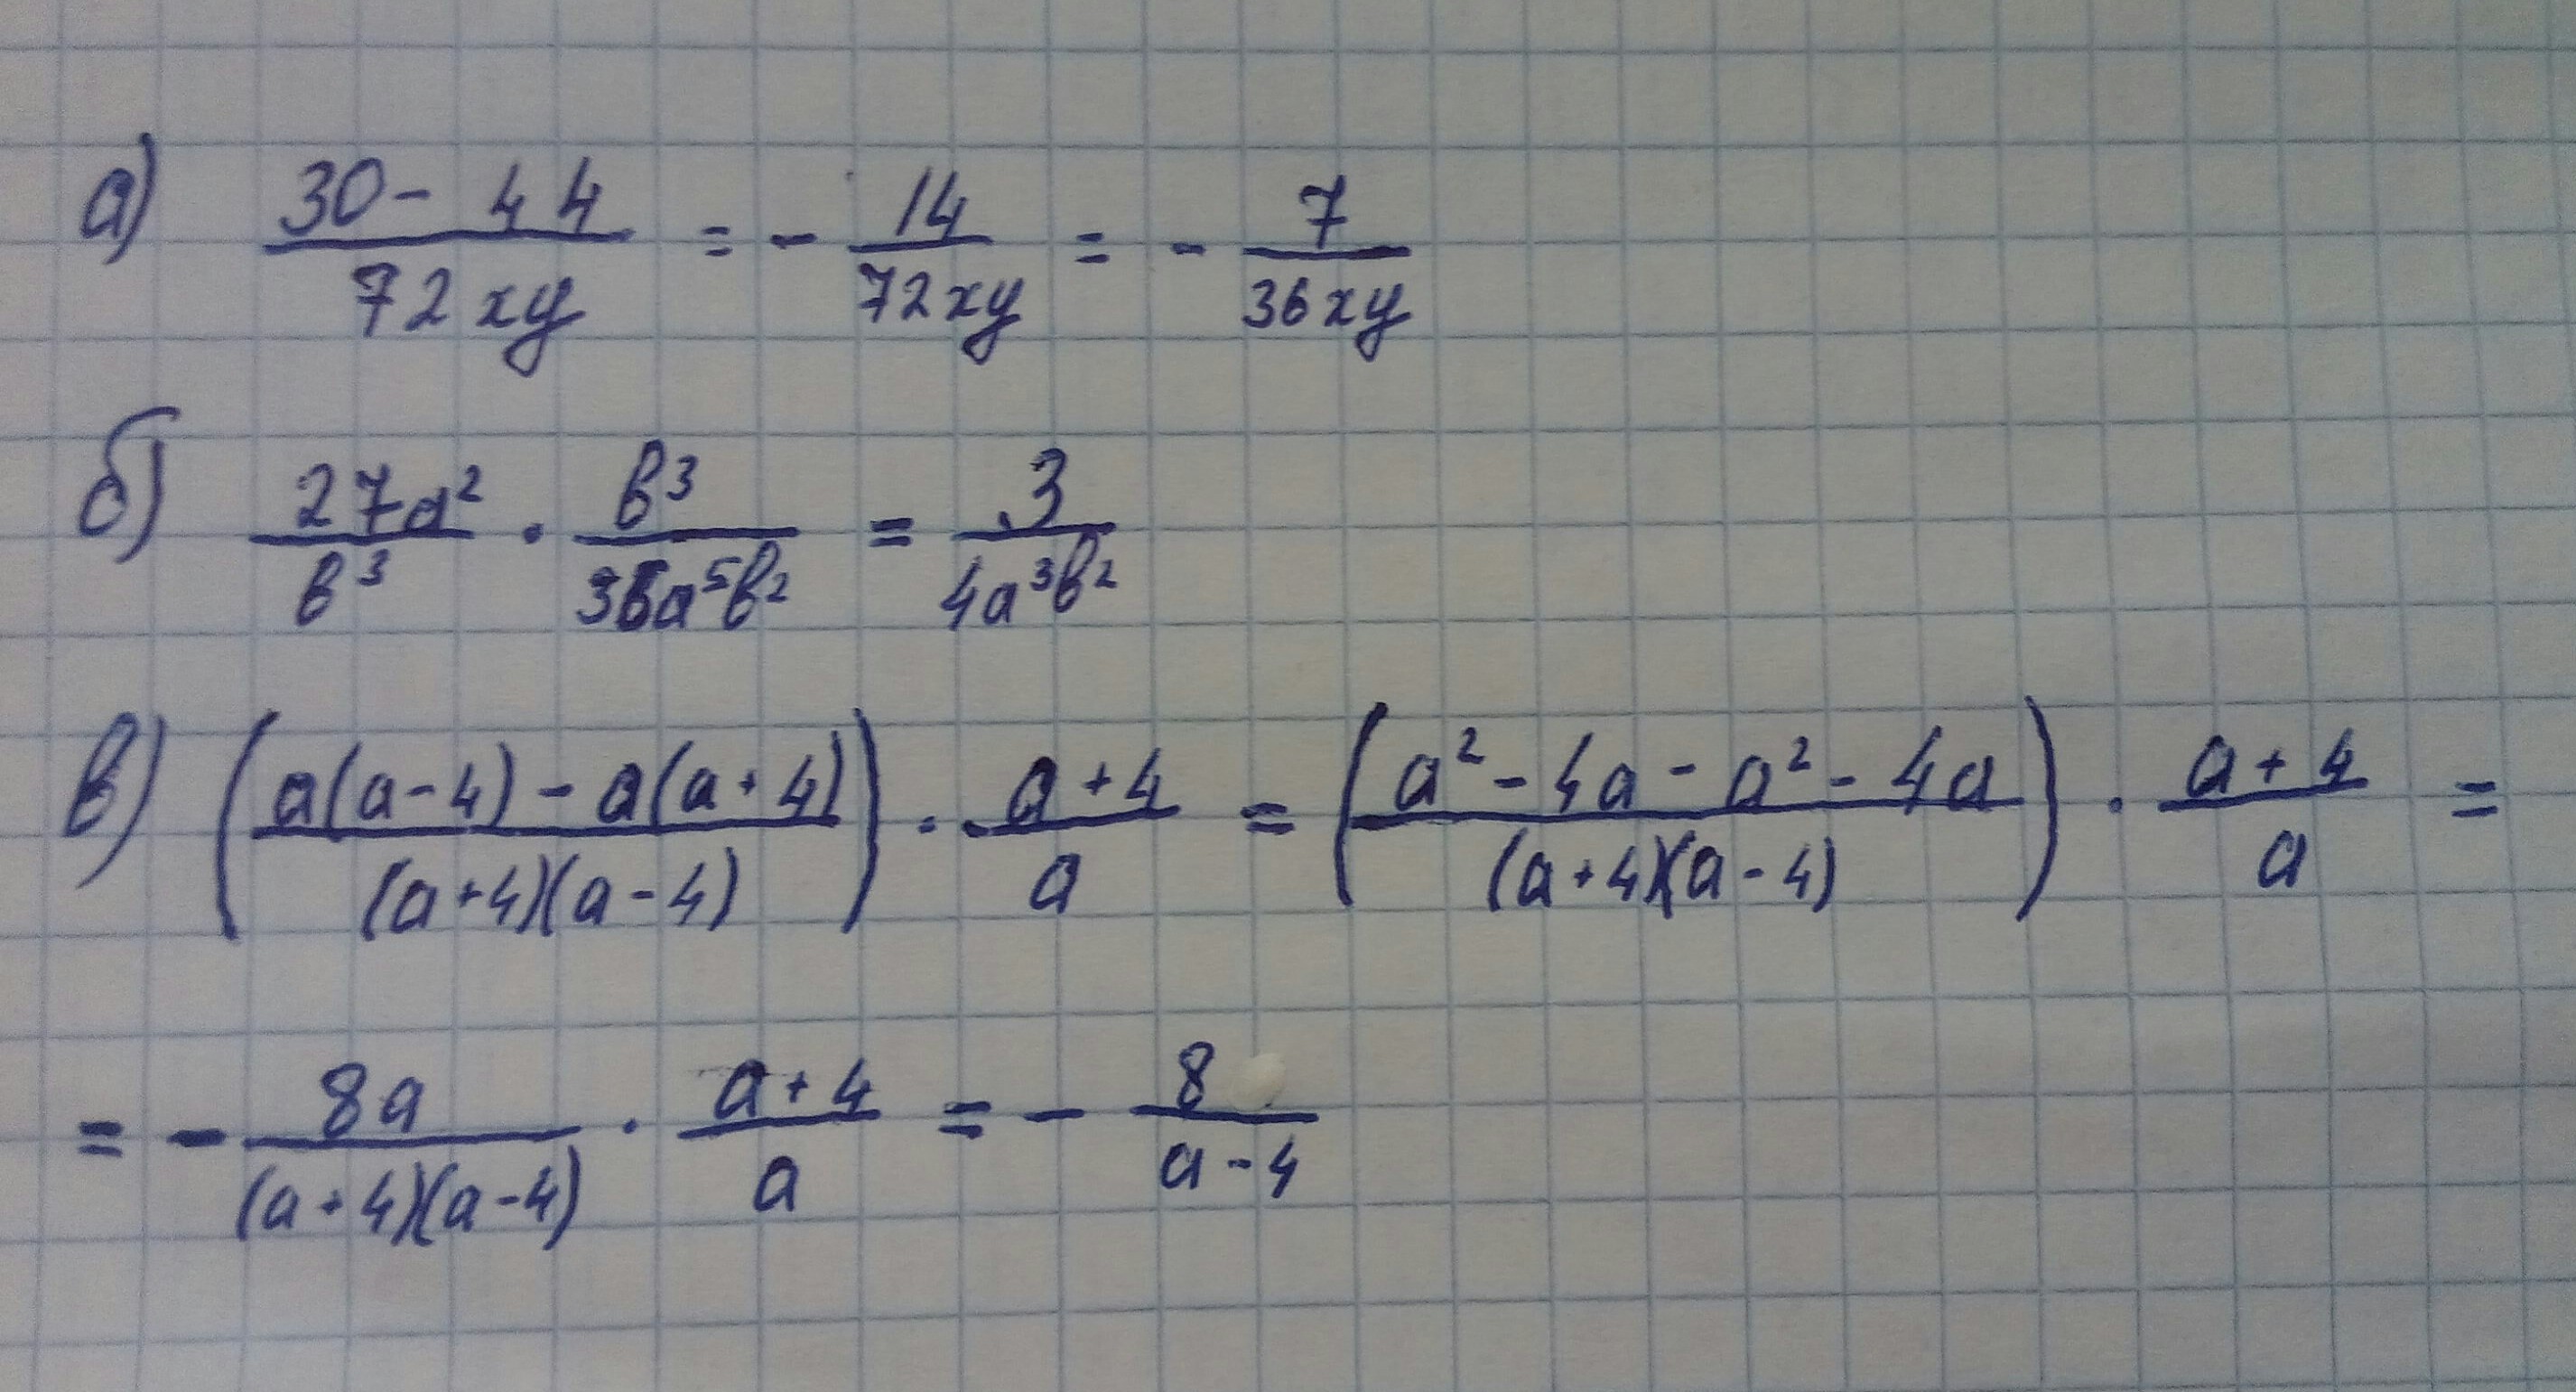 а) (30 - 44)/(72xy) = - 14/(72xy) = - 7/(36xy)
б) (27a²)/(b³) · (b³)/(36a⁵b²) = 3/(4a³b²)
в) ((a(a-4) - a(a+4))/((a+4)(a-4))) · (a+4)/a = ((a² - 4a - a² - 4a)/((a+4)(a-4))) · (a+4)/a =
= - (8a)/((a+4)(a-4)) · (a+4)/a = - 8/(a-4)